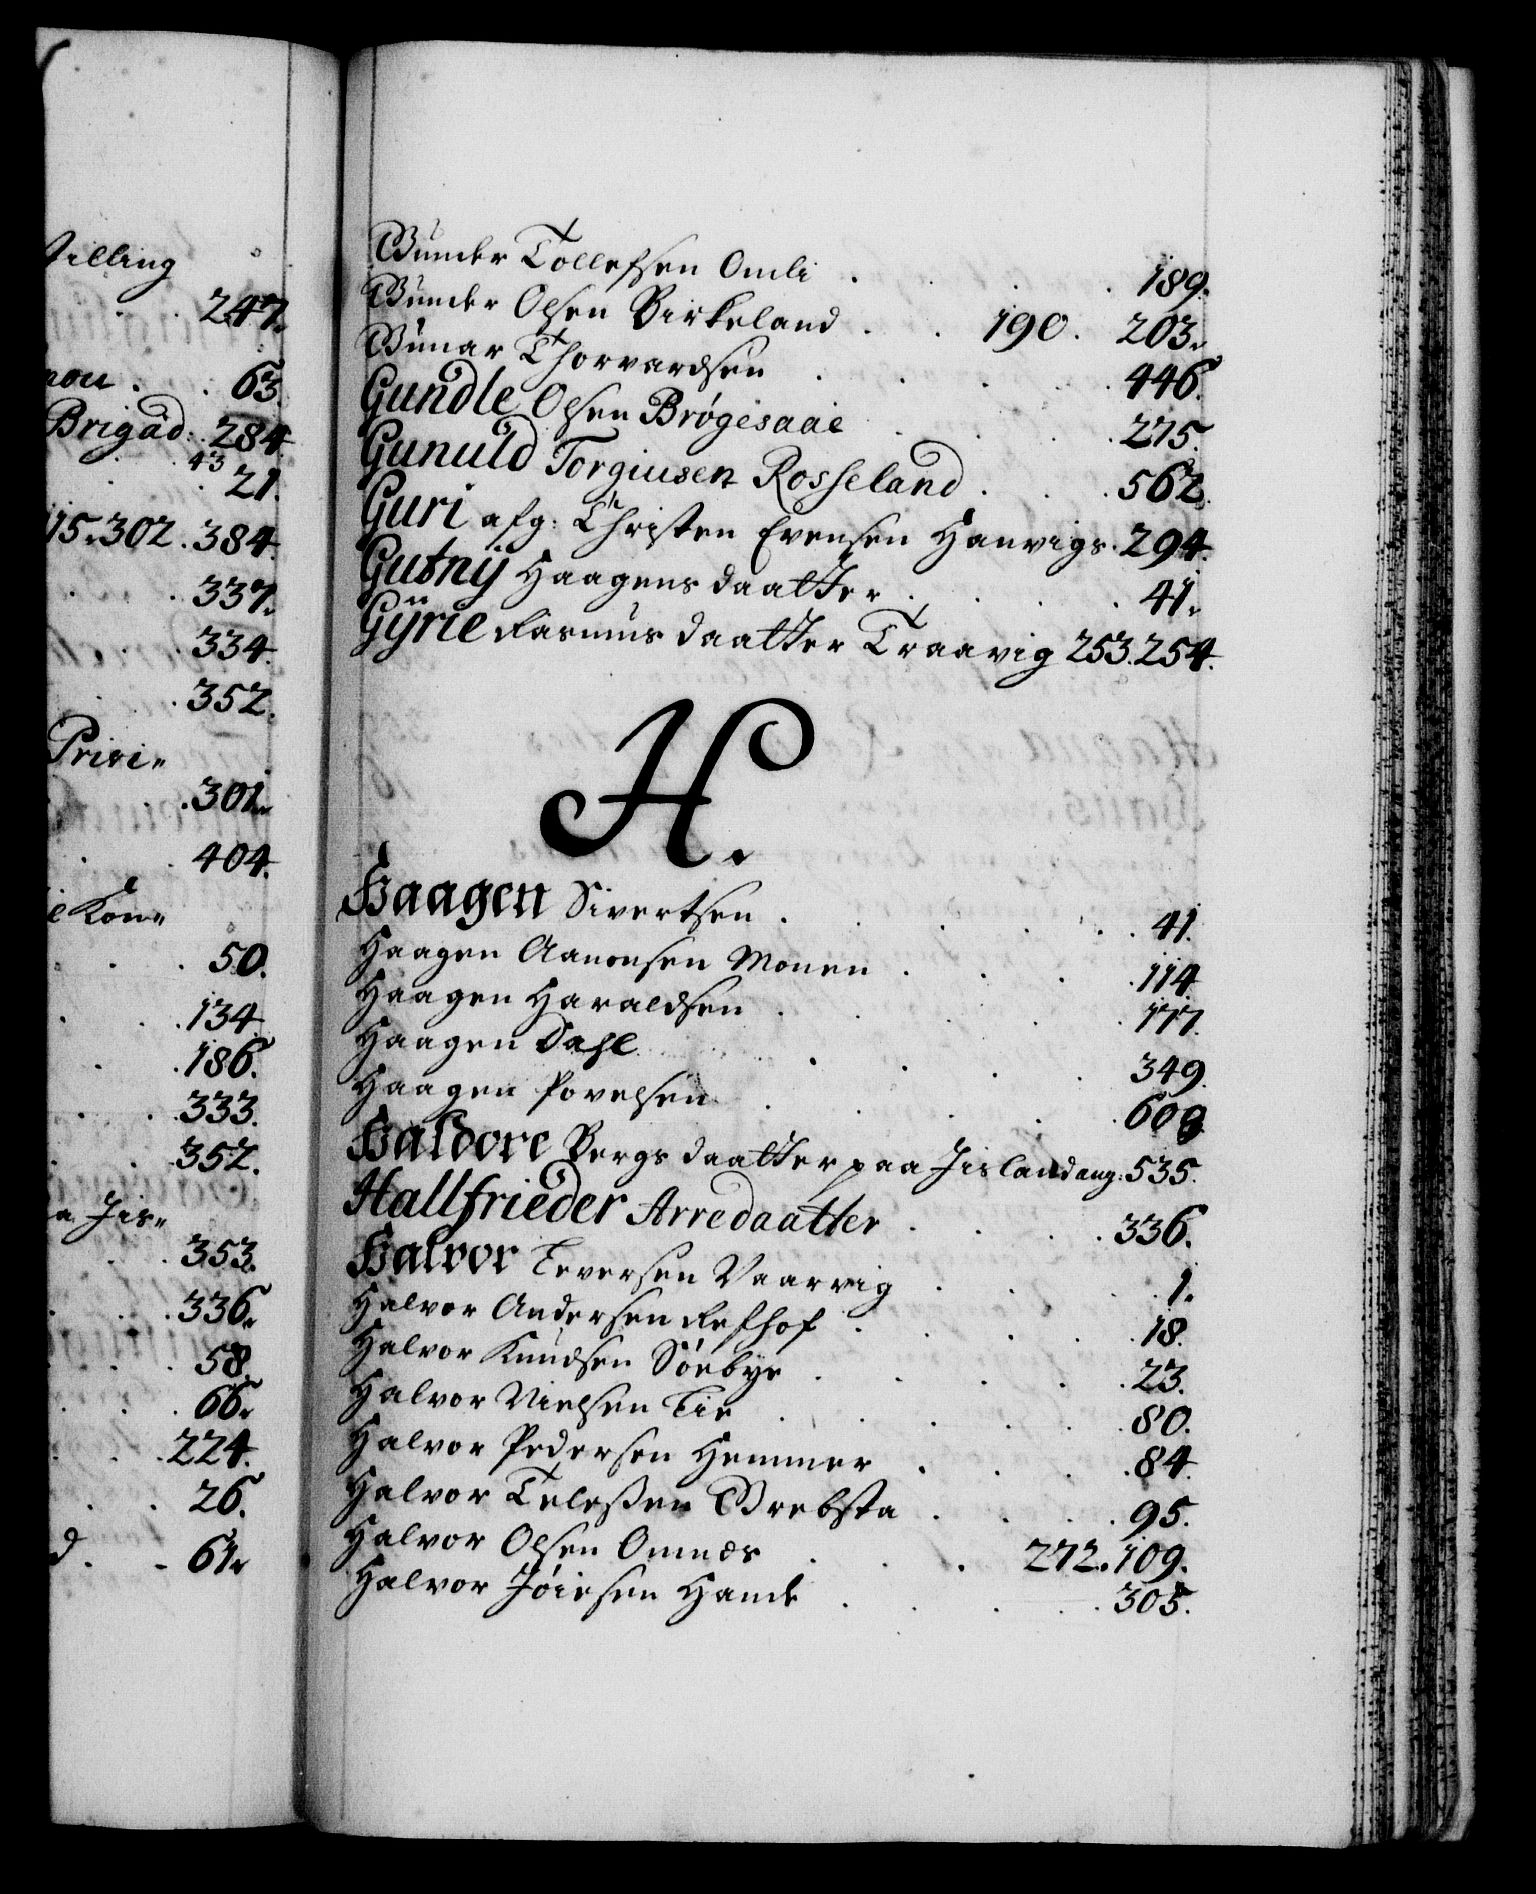 illing
247.
63.
Brigad: 284.
43
21.
15. 302. 384.
337.
334.
352.
Privi„
301.
404.
e Kon„
50.
134.
186.
333.
352.
a Jis„
353.
336.
58.
66.
224.
26.
d. 61.
Gunder Tollefsen Omli . . . 189.
Gunder Olsen Birkeland . . 190. 203.
Gunar Thorvardsen . . . 446.
Gundle Olsen Brøgesaaie . . . 275.
Gunuld Torgiusen Rosseland . . . 562.
Guri afg: Christen Evensen Hanvigs. 294.
Gutnÿ Haagens daatter . . . 41.
Gÿrie Rasmus daatter Traavig 253. 254.
H.
Haagen Sivertsen . . . 41.
Haagen Aanonsen Monen . . . 114.
Haagen Haraldsen . . . 177.
Haagen Dahl . . . 349.
Haagen Povelsen . . . 608.
Haldore Bergs daatter paa Jisland ang: 535.
Hallfrieder Arredaatter . . . 336.
Halvor Teversen Vaarvig . . . 1.
Halvor Andersen Refhof . . . 18.
Halvor Knudsen Söebye . . . 23.
Halvor Nielsen Tie . . . 80.
Halvor Pedersen Hemmer . . . 84.
Halvor Teleßen Grebsta . . . 95.
Halvor Olsen Omnæs . . . 272. 109.
Halvor Jöiesen Hande . . . 305.